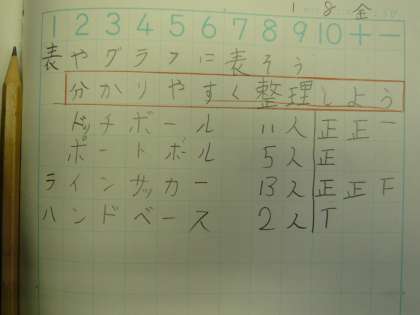 1 8 金
1 2 3 4 5 6 7 8 9 10 十 一
表やグラフに表そう
分かりやすく整理しよう
ドッチボール 11人 正正一
ポートボール 5人 正
ラインサッカー 13人 正正F
ハンドベース 2人 T